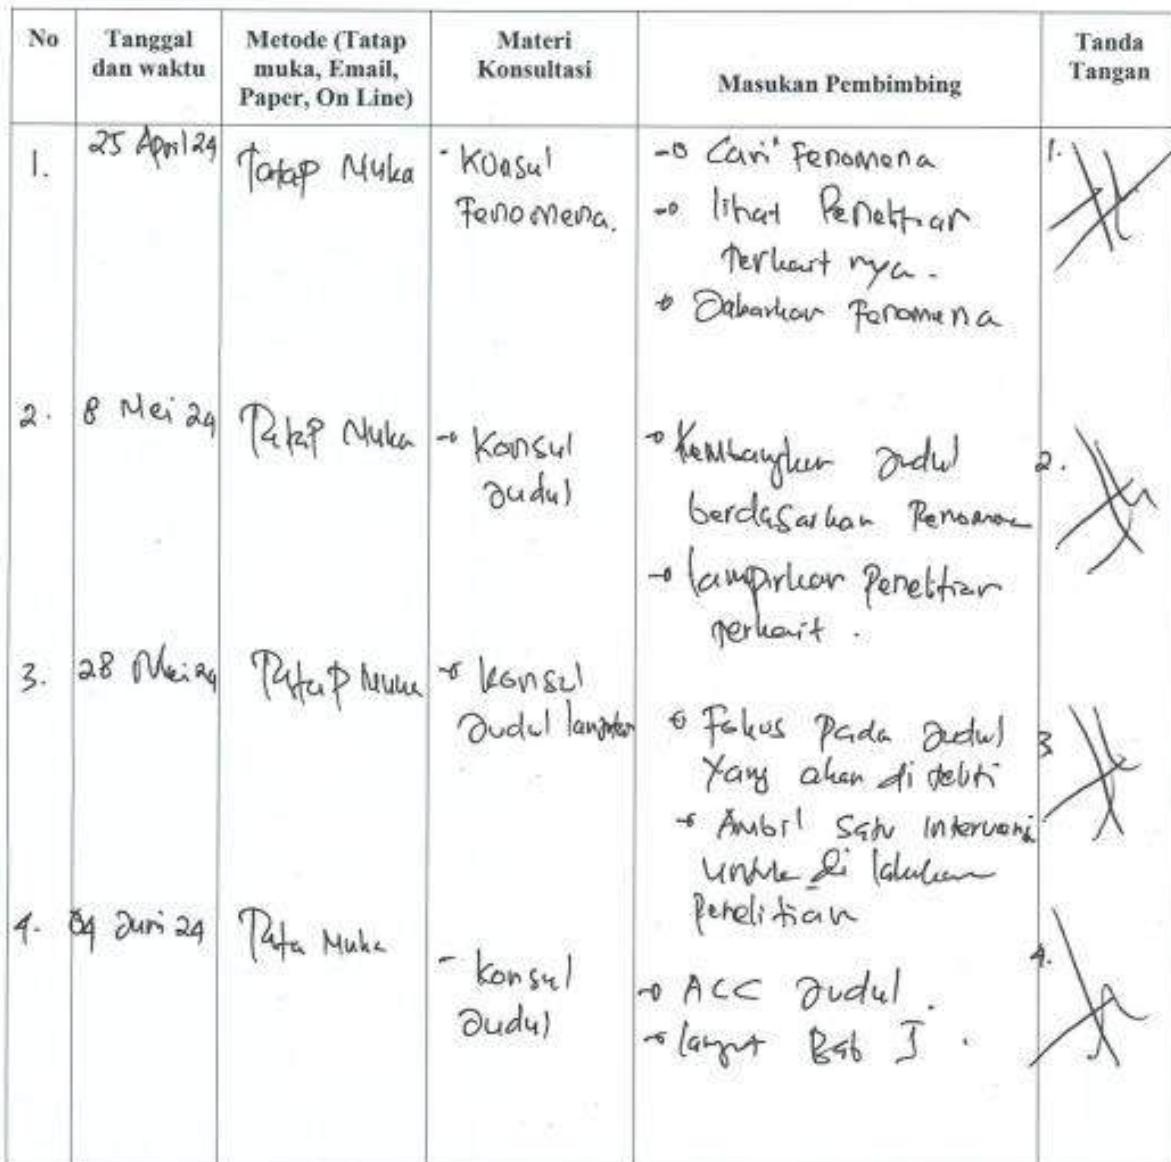 No Tanggal dan waktu Metode (Tatap muka, Email, Paper, On Line) Materi Konsultasi Masukan Pembimbing Tanda Tangan
1. 25 April 24 Tatap Muka - Konsul Fenomena. - Cari Fenomena 1.
- lihat Penelitian
terkait nya.
- Jabarkan Fenomena
2. 8 Mei 24 Tatap Muka - Konsul Judul - Kembangkan Judul 2.
berdasarkan Fenomena
- lampirkan Penelitian
terkait.
3. 28 Mei 24 Tatap Muka - Konsul Judul lanjutan - Fokus Pada Judul 3
Yang akan di teliti
- Ambil Satu Intervensi
untuk di lakukan
Penelitian
4. 04 Juni 24 Tata Muka - Konsul Judul - ACC Judul. 4.
- lanjut Bab I.